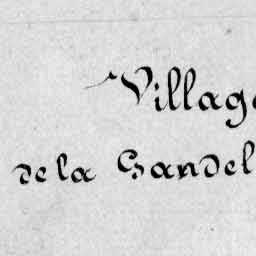 Village
de la Gandel